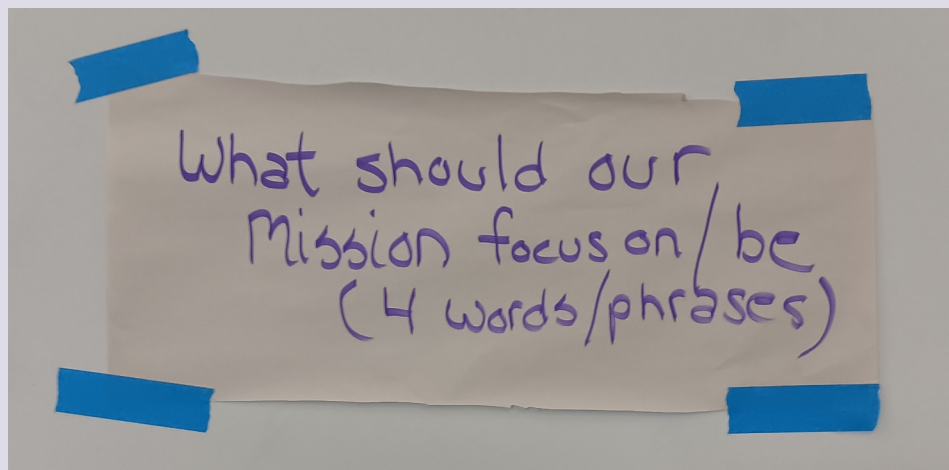 What should our
Mission focus on/be
(4 words/phrases)